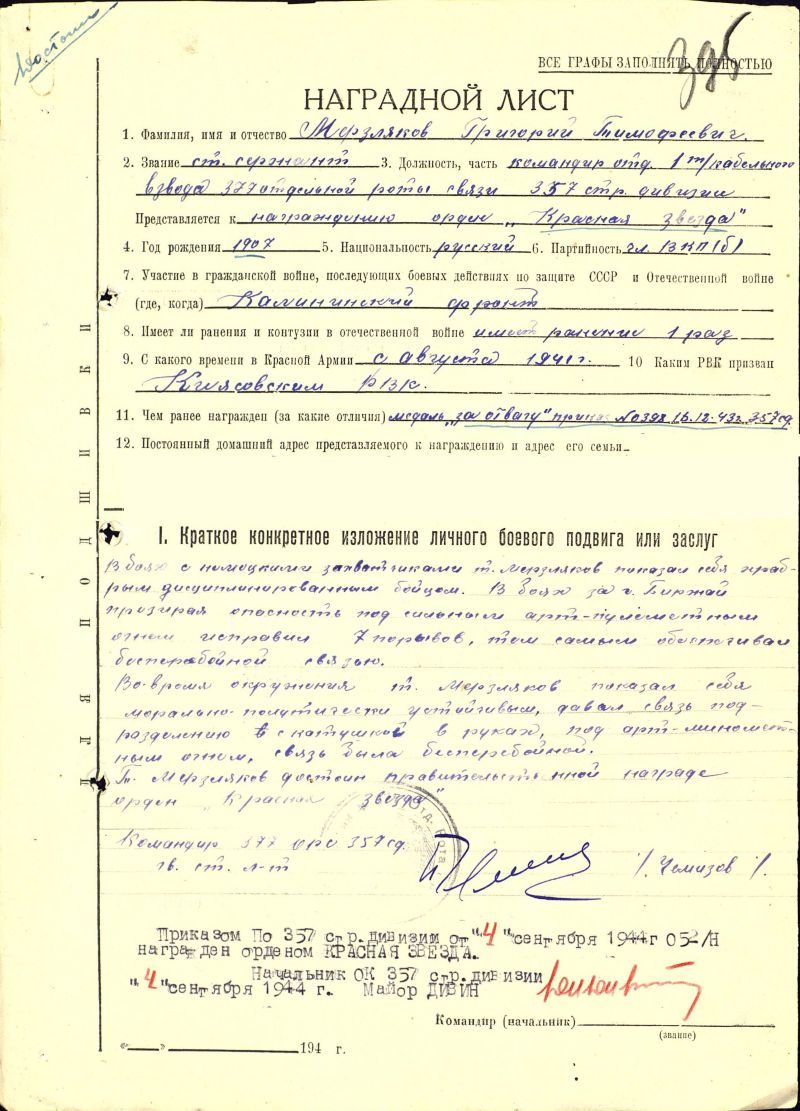 Достоин
ВСЕ ГРАФЫ ЗАПОЛНЯТЬ ПОЛНОСТЬЮ
НАГРАДНОЙ ЛИСТ
1. Фамилия, имя и отчество Мерзляков Григорий Тимофеевич.
2. Звание ст. сержант 3. Должность, часть командир отд. 1 т/кабельного
взвода 377 отдельной роты связи 357 стр. дивизии
Представляется к награждению орден „Красная звезда"
4. Год рождения 1907 5. Национальность русский 6. Партийность чл. ВКП(б)
7. Участие в гражданской войне, последующих боевых действиях по защите СССР и Отечественной войне
(где, когда) Калининский фронт
8. Имеет ли ранения и контузии в отечественной войне имеет ранение 1 раз
9. С какого времени в Красной Армии с августа 1941 г. 10 Каким РВК призван
Киясовским РВК.
11. Чем ранее награжден (за какие отличия) медаль „за отвагу" приказ №039 16.12.43г 357 сд.
12. Постоянный домашний адрес представляемого к награждению и адрес его семьи
ДЛЯ ПОДШИВКИ
I. Краткое конкретное изложение личного боевого подвига или заслуг
В боях с немецкими захватчиками т. Мерзляков показал себя храб-
рым дисциплинированным бойцом. В боях за г. Биржай
презирая опасность под сильным арт-пулеметным
огнем исправил 7 порывов, тем самым обеспечивал
бесперебойной связью.
Во-время окружения т. Мерзляков показал себя
морально-политически устойчивым, давал связь под-
разделению с катушкой в руках, под арт-миномет-
ным огнем, связь была бесперебойной.
Т. Мерзляков достоин правительственной награде
орден „Красная звезда"
Командир 377 орс 357 сд.
гв. ст. л-т /Чемизов/.
Приказом По 357 стр.дивизии от "4" сентября 1944г 052/Н
награжден орденом КРАСНАЯ ЗВЕЗДА.
Начальник ОК 357 стр.дивизии
"4" сентября 1944 г. Майор ДИВИН
Командир (начальник)
(звание)
«___»___194 г.